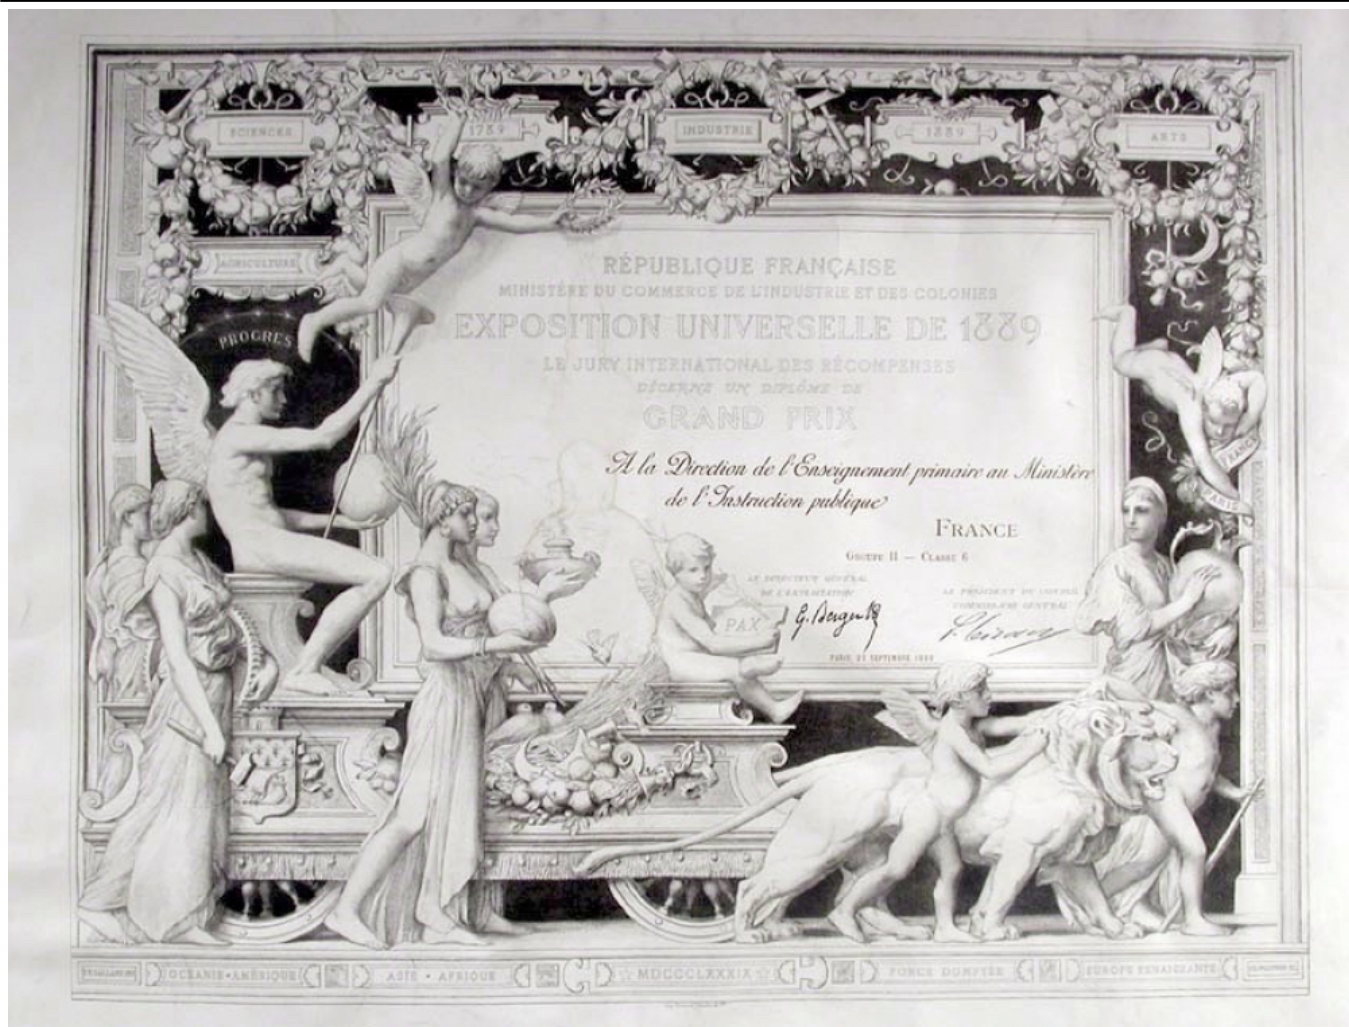 SCIENCES
1789
INDUSTRIE
1889
ARTS
AGRICULTURE
PROGRES
RÉPUBLIQUE FRANÇAISE
MINISTÈRE DU COMMERCE DE L'INDUSTRIE ET DES COLONIES
EXPOSITION UNIVERSELLE DE 1889
LE JURY INTERNATIONAL DES RÉCOMPENSES
DÉCERNE UN DIPLÔME DE
GRAND PRIX
A la Direction de l'Enseignement primaire au Ministère
de l'Instruction publique
FRANCE
GROUPE II — CLASSE 6
LE DIRECTEUR GÉNÉRAL
DE L'EXPLOITATION
LE PRÉSIDENT DU CONSEIL
COMMISSAIRE GÉNÉRAL
G. Berger
PARIS, 29 SEPTEMBRE 1889
PAX
FRANCE
PARIS
OCEANIE • AMÉRIQUE
ASIE • AFRIQUE
MDCCCLXXXIX
FORCE DOMPTÉE
EUROPE RENAISSANTE